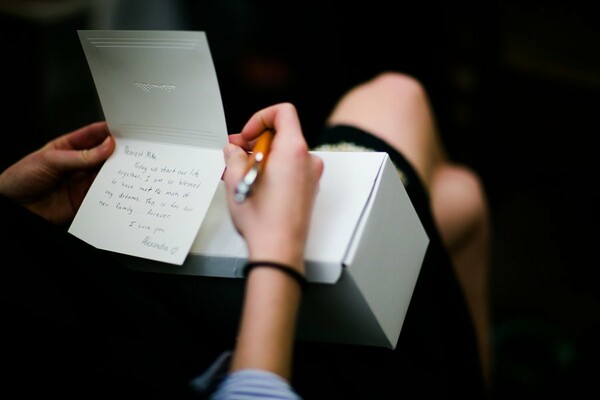 Dearest Mike
Today we start our life
together. I am so blessed
to have met the man of
my dreams. This is for our
new family forever.
I love you
Alexandra